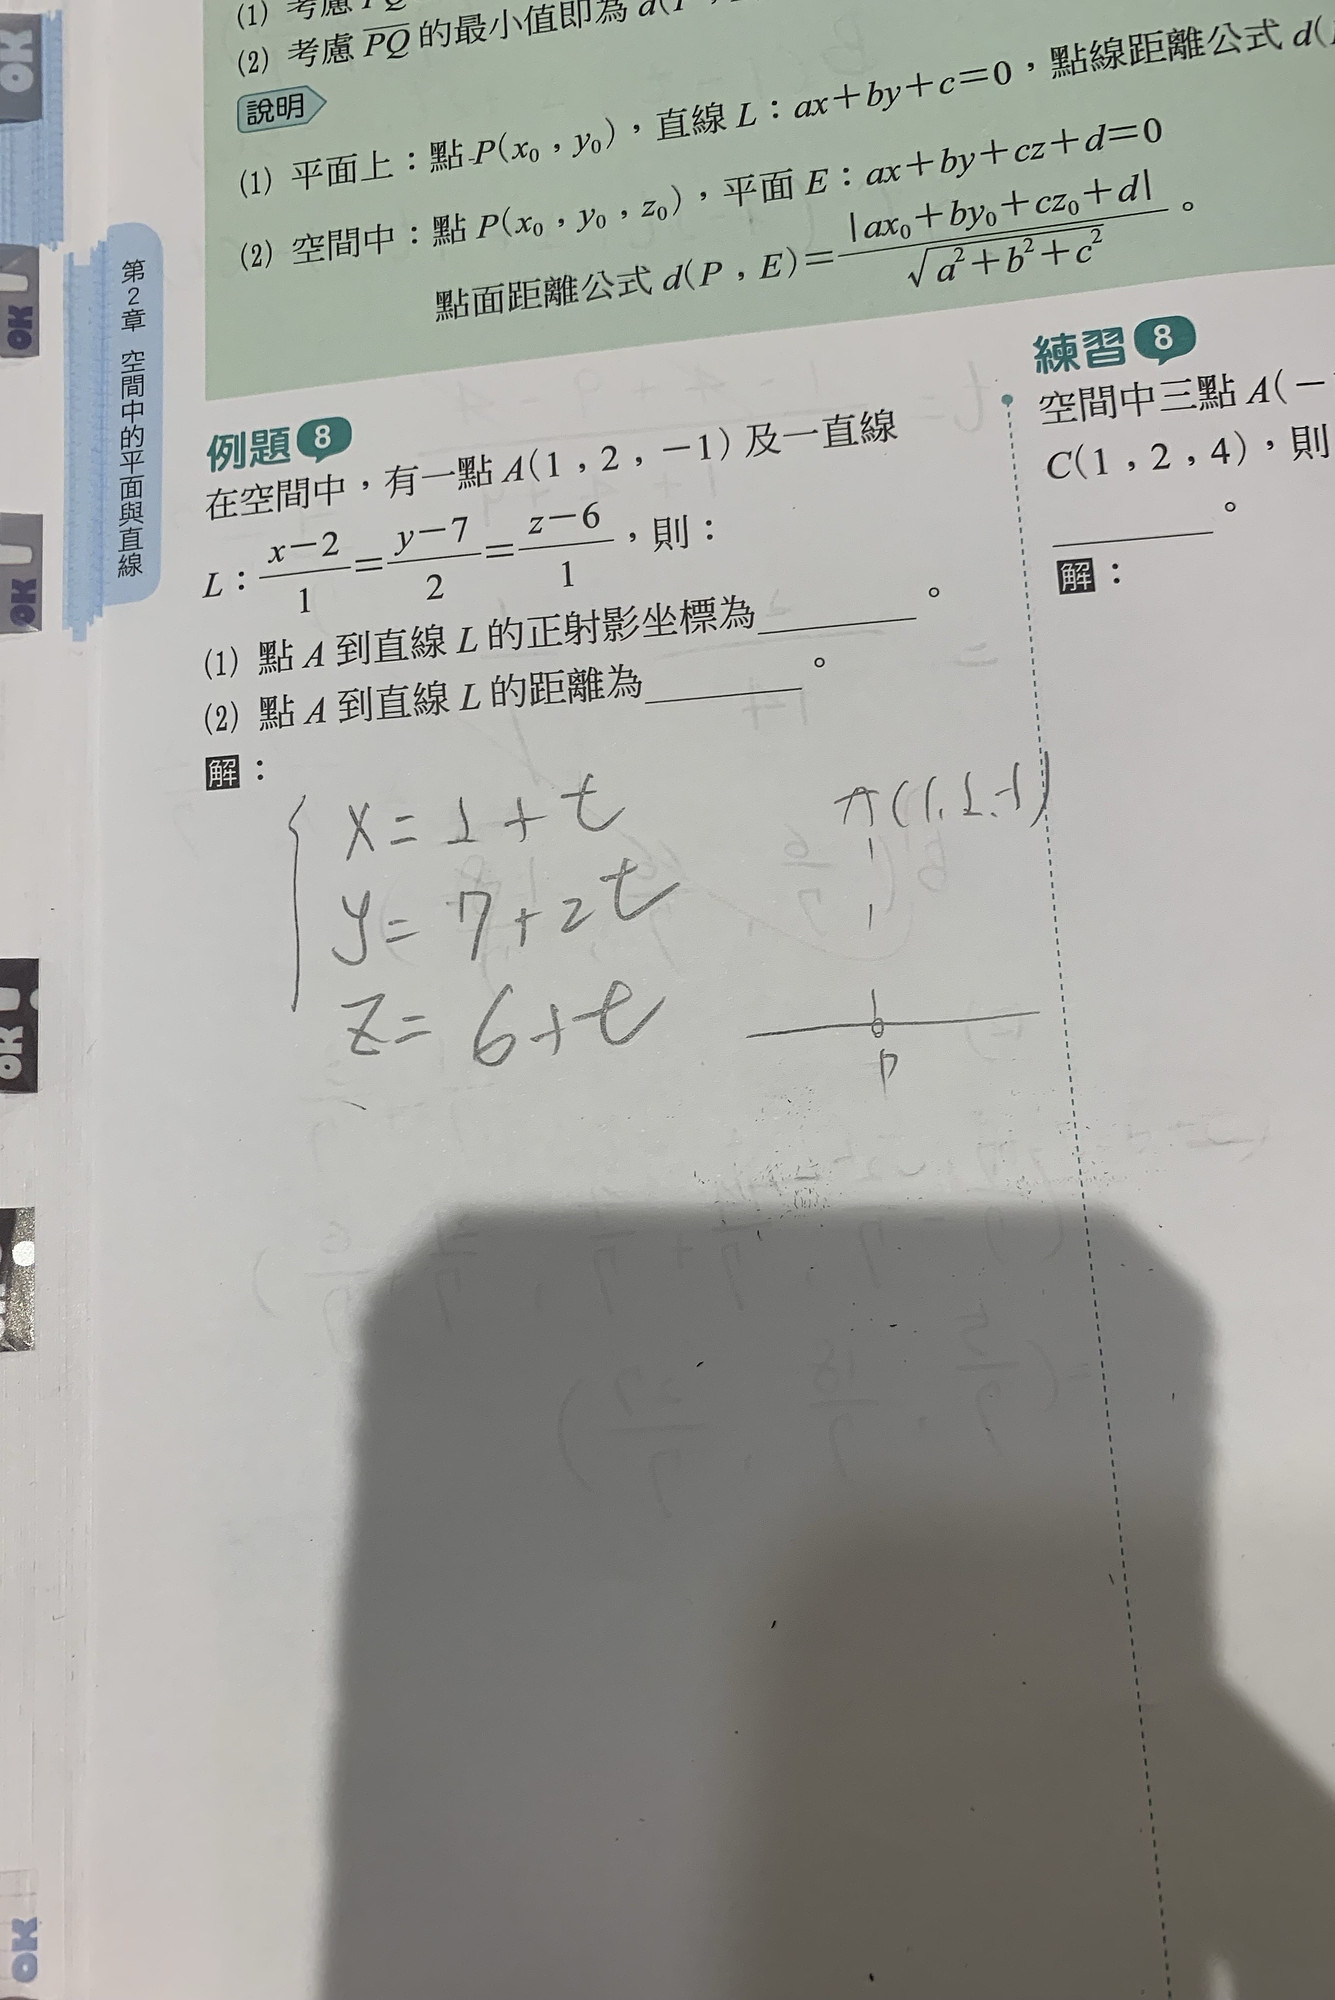 (1) 考慮
(2) 考慮 PQ 的最小值即為 d(
說明
(1) 平面上：點 P(x₀，y₀)，直線 L：ax＋by＋c＝0，點線距離公式 d(
(2) 空間中：點 P(x₀，y₀，z₀)，平面 E：ax＋by＋cz＋d＝0
點面距離公式 d(P，E)＝|ax₀＋by₀＋cz₀＋d| / √(a²＋b²＋c²)。
第2章 空間中的平面與直線
例題 8
在空間中，有一點 A(1，2，−1) 及一直線
L：(x−2)/1＝(y−7)/2＝(z−6)/1，則：
(1) 點 A 到直線 L 的正射影坐標為________。
(2) 點 A 到直線 L 的距離為________。
解：
x = 1 + t
y = 7 + 2t
z = 6 + t
P
練習 8
空間中三點 A(−
C(1，2，4)，則
________。
解：
OK
OK
OK
OK
OK